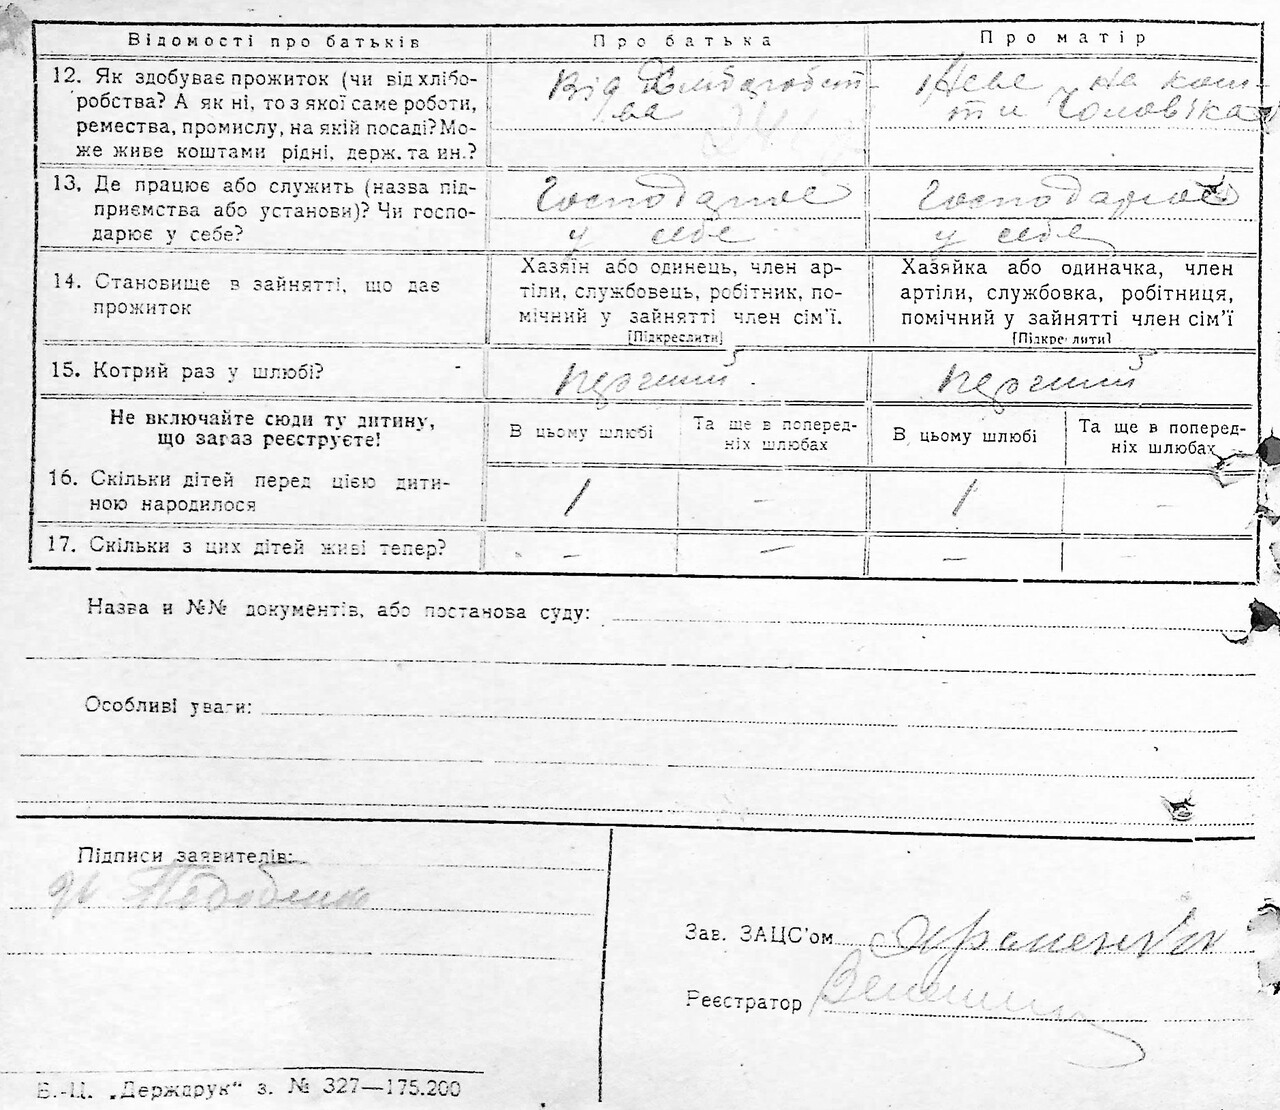 Відомості про батьків Про батька Про матір
12. Як здобуває прожиток (чи від хлібо-
робства? А як ні, то з якої саме роботи,
ремества, промислу, на якій посаді? Мо-
же живе коштами рідні, держ. та ин.?
Від хліборобст-
ва
Живе на кош-
ти чоловіка
13. Де працює або служить (назва під-
приємства або установи)? Чи госпо-
дарює у себе?
Господарює
у себе
Господарює
у себе
14. Становище в зайнятті, що дає
прожиток
Хазяїн або одинець, член ар-
тіли, службовець, робітник, по-
мічний у зайнятті член сім'ї.
[Підкреслити]
Хазяйка або одиначка, член
артіли, службовка, робітниця,
помічний у зайнятті член сім'ї
[Підкреслити]
15. Котрий раз у шлюбі?
перший
перший
Не включайте сюди ту дитину,
що зараз реєструєте!
В цьому шлюбі
Та ще в поперед-
ніх шлюбах
В цьому шлюбі
Та ще в поперед-
ніх шлюбах
16. Скільки дітей перед цією дити-
ною народилося
1 – 1 –
17. Скільки з цих дітей живі тепер?
– – – –
Назва и №№ документів, або постанова суду:
Особливі уваги:
Підписи заявителів:
Зав. ЗАЦС'ом
Реєстратор
Б.-Ц. „Держдрук“ з. № 327—175.200